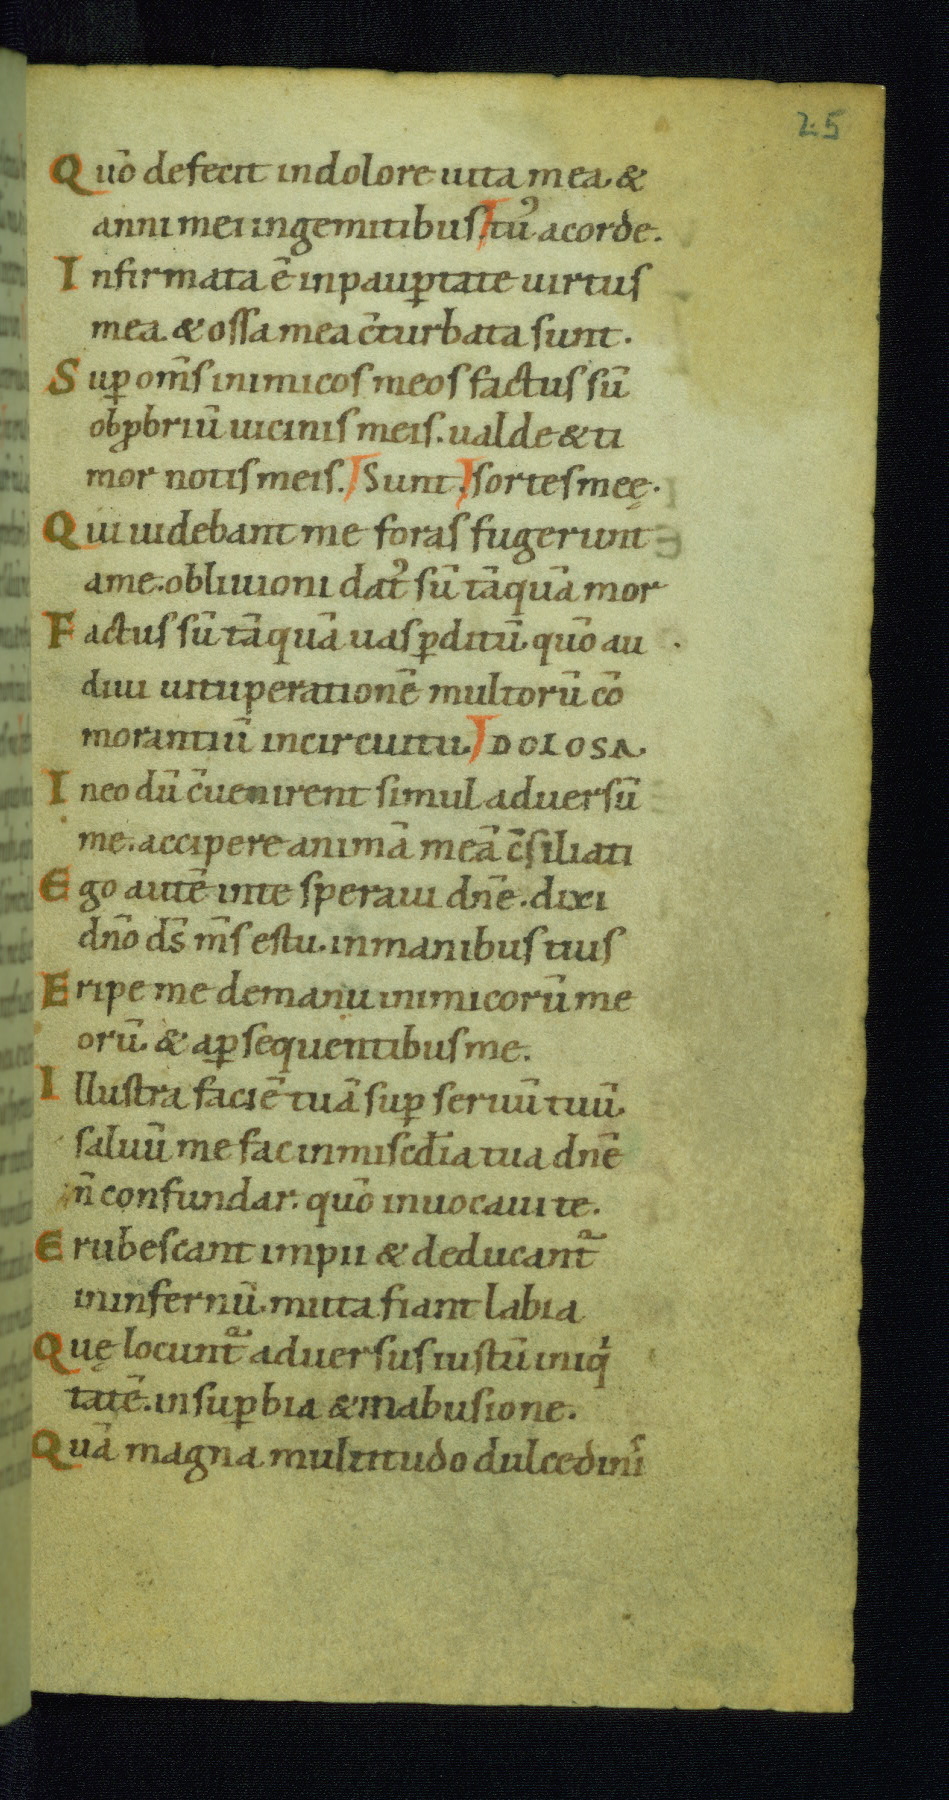 25
Quō defecit indolore uita mea. &
anni mei ingemitibus. tū᾿ acorde.
Infirmata ē inpauꝑtate uirtus
mea. & ossa mea c̄turbata sunt.
Suꝑ om̄s inimicos meos factus sū
obꝓbriū uicinis meis. ualde & ti
mor notis meis. Sunt. sortes meę.
Qui uidebant me foras fugerunt
ame. obliuioni dat᾿ sū tāquā mor
Factus sū tāquā uas ꝑditū. quō au
diui uituperationē multorū cō
morantiū incircuitu. DOLOSA.
Ineo dū c̄uenirent simul aduersū
me. accipere animā meā c̄siliati
Ego autē inte speraui dn̄e. dixi
dn̄o ds̄ m̄s estu. inmanibus tuis
Eripe me demanu inimicorū me
orū. & aꝑsequentibus me.
Illustra faciē tuā suꝑ seruū tuū.
saluū me fac inmiscđia tua dn̄e
n̄ confundar. quō inuocaui te.
Erubescant impii & deducantᷓ
ininfernū. muta fiant labia
Quę locuntᷓ aduersus iustū iniqͥ
tatē. insuꝑbia & inabusione.
Quā magna multitudo dulcediniˢ